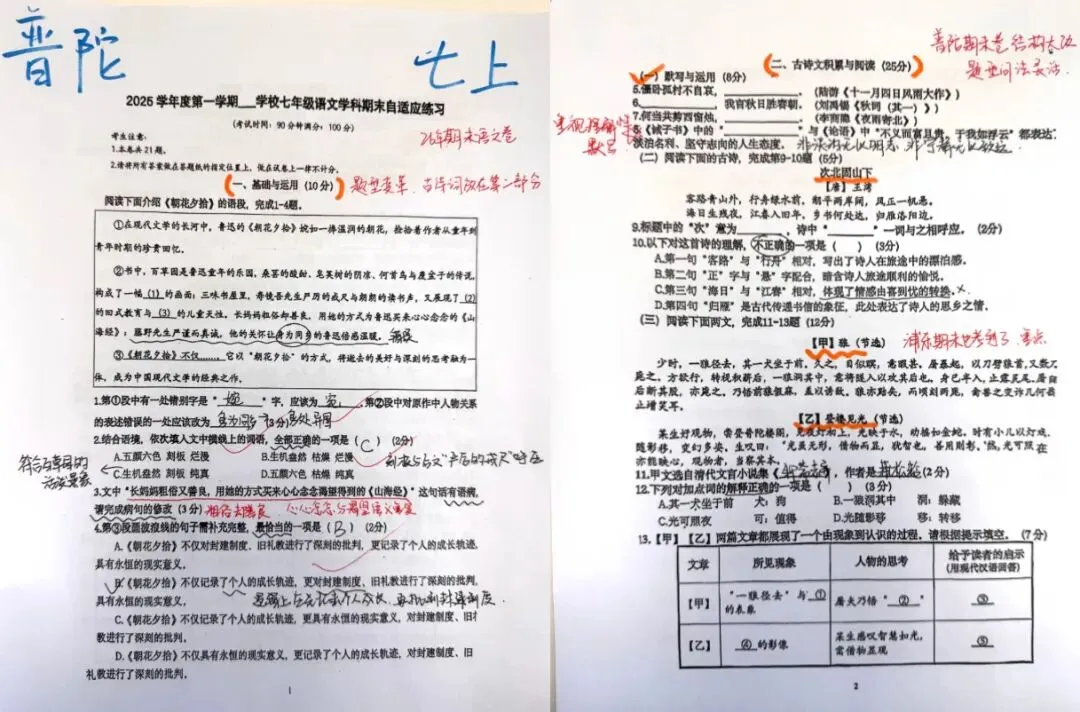 普陀
七上
2025 学年度第一学期___学校七年级语文学科期末自适应练习
(考试时间：90分钟满分：100分)
考生注意：
1.本卷共21题。
2.请将所有答案做在答题纸的指定位置上，做在试卷上一律不计分。
26年期末语文卷
一、基础与运用（10分）
题型变革，古诗词放在第二部分
阅读下面介绍《朝花夕拾》的语段，完成1-4题。
①在现代文学的长河中，鲁迅的《朝花夕拾》婉如一捧温润的朝花，捡拾着作者从童年到
青年时期的珍贵回忆。
②书中，百草园是鲁迅童年的乐园，桑葚的酸甜、皂荚树的阴凉、何首乌与覆盆子的传说，
构成了一幅 (1) 的画面；三味书屋里，寿镜吾先生严厉的戒尺与朗朗的读书声，又展现了 (2)
的旧式教育与 (3) 的儿童天性。长妈妈粗俗却善良，用她的方式为鲁迅买来心心念念的《山
海经》；藤野先生严谨而真诚，他的关怀让身为同乡的鲁迅倍感温暖。
③《朝花夕拾》不仅……。它以“朝花夕拾”的方式，将逝去的美好与深刻的思考融为一
体，成为中国现代文学的经典之作。
1.第①段中有一处错别字是“ 婉 ”字，应该为 宛 。第②段中对原作中人物关系
的表述错误的一处应该改为 (3分)
2.结合语境，依次填入文中横线上的词语，全部正确的一项是（ C ）(2分)
A.五颜六色 刻板 烂漫 B.生机盎然 枯燥 烂漫
C.生机盎然 刻板 纯真 D.五颜六色 枯燥 纯真
3.文中“长妈妈粗俗又善良，用她的方式买来心心念念渴望得到的《山海经》”这句话有语病，
请完成病句的修改（3 分）
4.第③段画波浪线的句子需补充完整，最恰当的一项是（ B ）(2分)
A.《朝花夕拾》不仅对封建制度、旧礼教进行了深刻的批判，更记录了个人的成长轨迹，
具有永恒的现实意义。
B.《朝花夕拾》不仅记录了个人的成长轨迹，更对封建制度、旧礼教进行了深刻的批判，
具有永恒的现实意义。
C.《朝花夕拾》不仅记录了个人的成长轨迹，更具有永恒的现实意义，对封建制度、旧礼
教进行了深刻的批判。
D.《朝花夕拾》不仅具有永恒的现实意义，更记录了个人的成长轨迹，对封建制度、旧
礼教进行了深刻的批判。
1
普陀期末卷结构大改
题型问法灵活
二、古诗文积累与阅读（25分）
（一）默写与运用（8分）
5.僵卧孤村不自哀，__________。（陆游《十一月四日风雨大作》）
6.__________，我言秋日胜春朝。（刘禹锡《秋词（其一）》）
7.何当共剪西窗烛，__________。（李商隐《夜雨寄北》）
8.《诫子书》中的“__________”与《论语》中“不义而富且贵，于我如浮云”都表达
淡泊名利、坚守志向的人生态度。
非淡泊无以明志，非宁静无以致远
（二）阅读下面的古诗，完成第9-10题（5分）
次北固山下
【唐】王湾
客路青山外，行舟绿水前。潮平两岸阔，风正一帆悬。
海日生残夜，江春入旧年。乡书何处达，归雁洛阳边。
9.标题中的“次”意为______，诗中“______”一词与之相呼应。（2分）
10.以下对这首诗的理解，不正确的一项是（ ）（3分）
A.第一句“客路”与“行舟”相对，写出了诗人在旅途中的漂泊感。
B.第二句“正”字与“悬”字配合，暗含诗人旅途顺利的愉悦。
C.第三句“海日”与“江春”相对，体现了情感由喜到忧的转换。×
D.第四句“归雁”是古代传递书信的象征，此处表达了诗人的思乡之情。
（三）阅读下面两文，完成11-13题（12分）
浦东期末也考到了，重点
【甲】狼（节选）
少时，一狼径去，其一犬坐于前。久之，目似瞑，意暇甚。屠暴起，以刀劈狼首，又数刀
毙之。方欲行，转视积薪后，一狼洞其中，意将隧入以攻其后也。身已半入，止露尻尾。屠自
后断其股，亦毙之。乃悟前狼假寐，盖以诱敌。狼亦黠矣，而顷刻两毙，禽兽之变诈几何哉？
止增笑耳。
【乙】萤楼见光（节选）
11.甲文选自清代文言小说集《聊斋志异》，作者是蒲松龄(2分)
12.下列对加点词的解释正确的一项是（ ）（3分）
A.其一犬坐于前 犬：狗 B.一狼洞其中 洞：躲藏
C.光可照夜 可：值得 D.光随影移 移：转移
13.【甲】【乙】两篇文章都展现了一个由现象到认识的过程。请根据提示填空。（7分）
文章 所见现象 人物的思考 给予读者的启示（用现代汉语回答）
【甲】 “一狼径去”与 ① 的表象 屠夫乃悟“ ② ” ③
【乙】 ④ 的影像 某生感叹智慧如光，需借物显现 ⑤
2